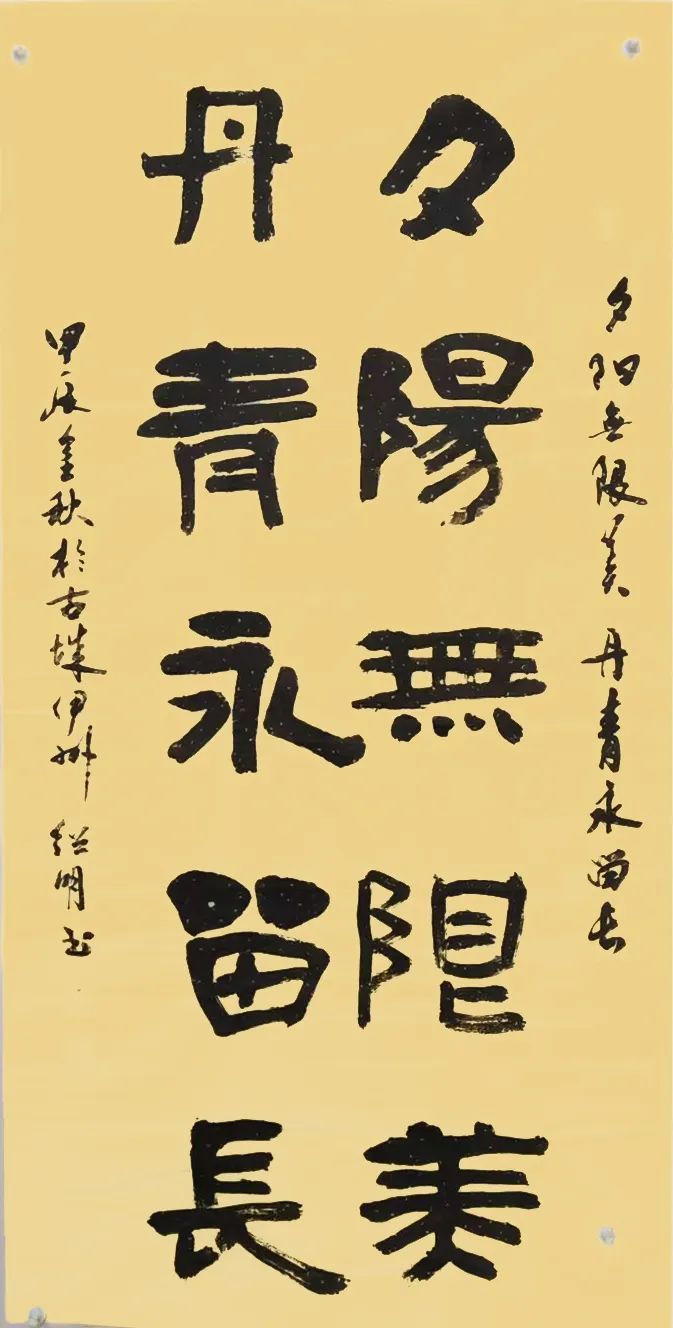 夕阳無限美丹青永留长
夕陽無限美
丹青永留長
甲辰金秋於古城伊州 绍明书